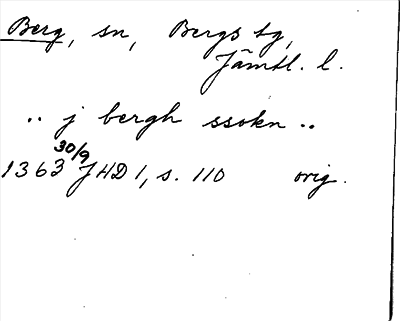 Berg, sn, Bergs tg,
Jämtl. l.
.. j bergh ssokn ..
1363 30/9 JHD 1, s. 110 orig.